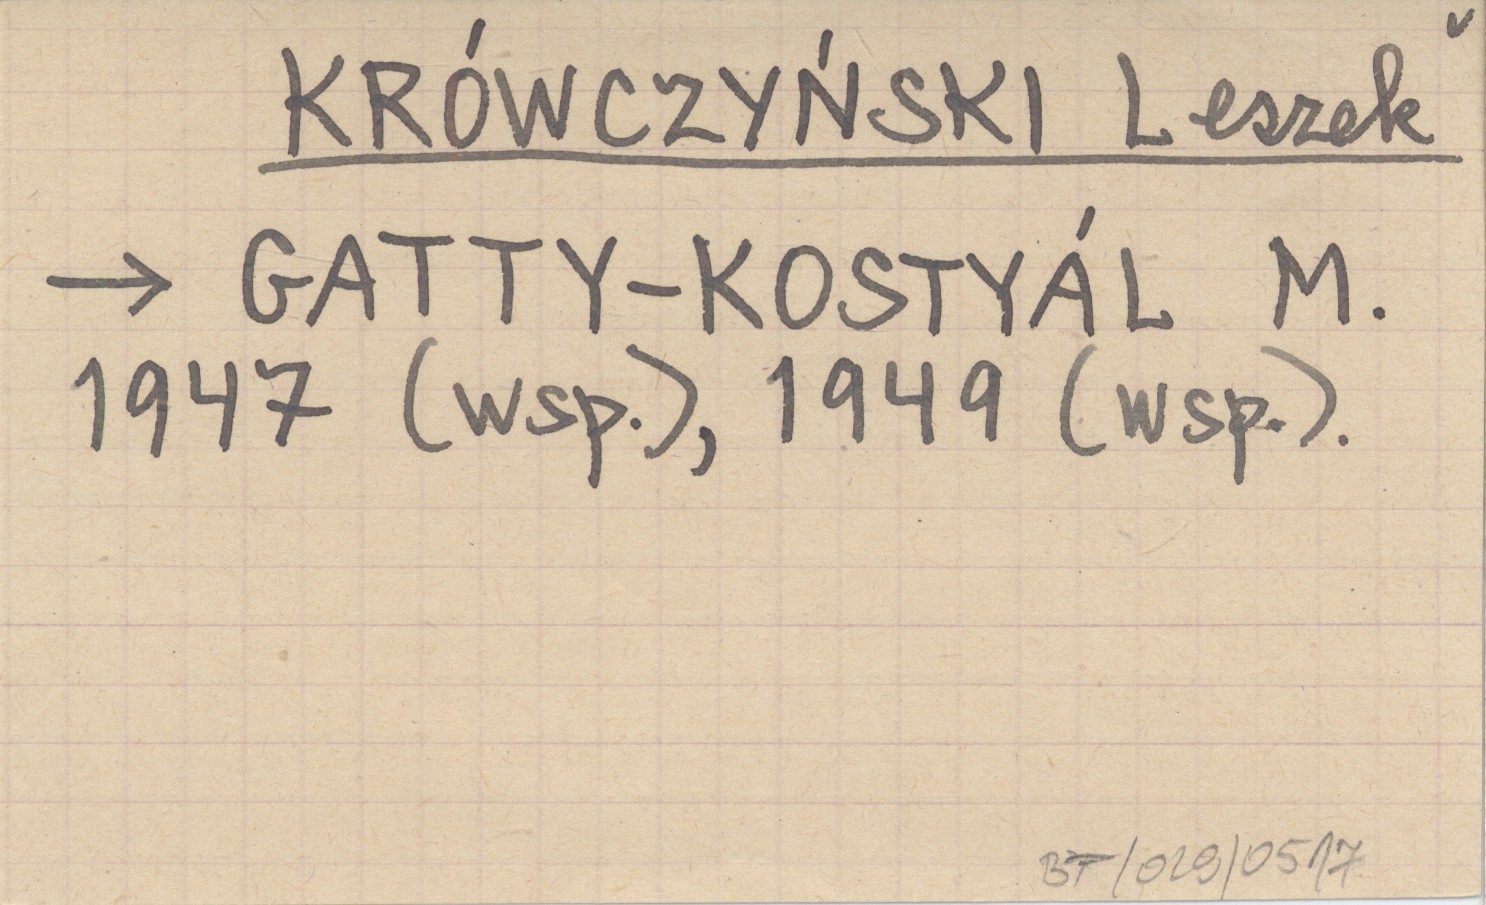 KRÓWCZYŃSKI Leszek
→ GATTY-KOSTYÁL M.
1947 (wsp.), 1949 (wsp.).
BT/029/0517